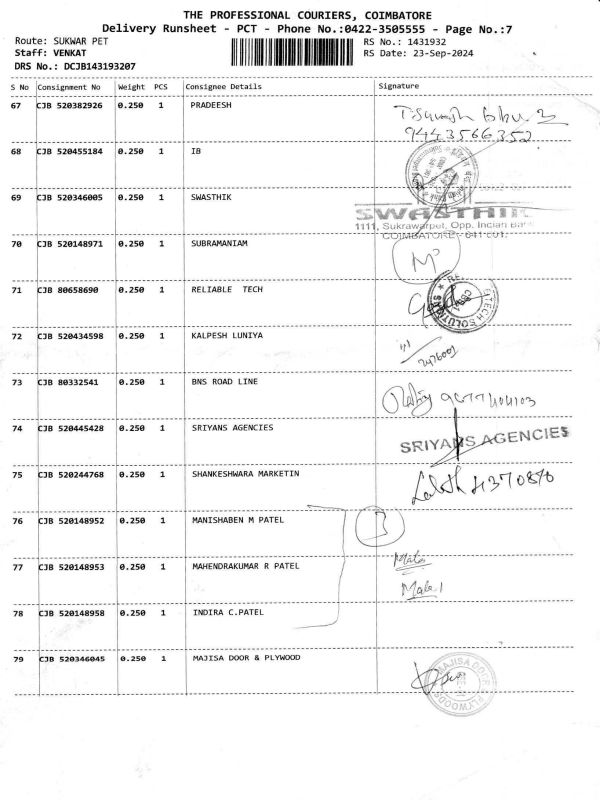 THE PROFESSIONAL COURIERS, COIMBATORE
Delivery Runsheet - PCT - Phone No.:0422-3505555 - Page No.:7
Route: SUKWAR PET
RS No.: 1431932
Staff: VENKAT
RS Date: 23-Sep-2024
DRS No.: DCJB143193207
S No Consignment No Weight PCS Consignee Details Signature
67 CJB 520382926 0.250 1 PRADEESH
9443566352
68 CJB 520455184 0.250 1 IB
69 CJB 520346005 0.250 1 SWASTHIK
SWASTHIK
1111, Sukrawarpet, Opp. Indian Bank
COIMBATORE - 641 001.
70 CJB 520148971 0.250 1 SUBRAMANIAM
71 CJB 80658690 0.250 1 RELIABLE TECH
72 CJB 520434598 0.250 1 KALPESH LUNIYA
73 CJB 80332541 0.250 1 BNS ROAD LINE
74 CJB 520445428 0.250 1 SRIYANS AGENCIES
SRIYANS AGENCIES
75 CJB 520244768 0.250 1 SHANKESHWARA MARKETIN
76 CJB 520148952 0.250 1 MANISHABEN M PATEL
3
77 CJB 520148953 0.250 1 MAHENDRAKUMAR R PATEL
78 CJB 520148958 0.250 1 INDIRA C.PATEL
79 CJB 520346045 0.250 1 MAJISA DOOR & PLYWOOD
MAJISA DOOR & PLYWOODS